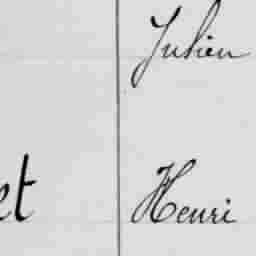 Julien
et Henri